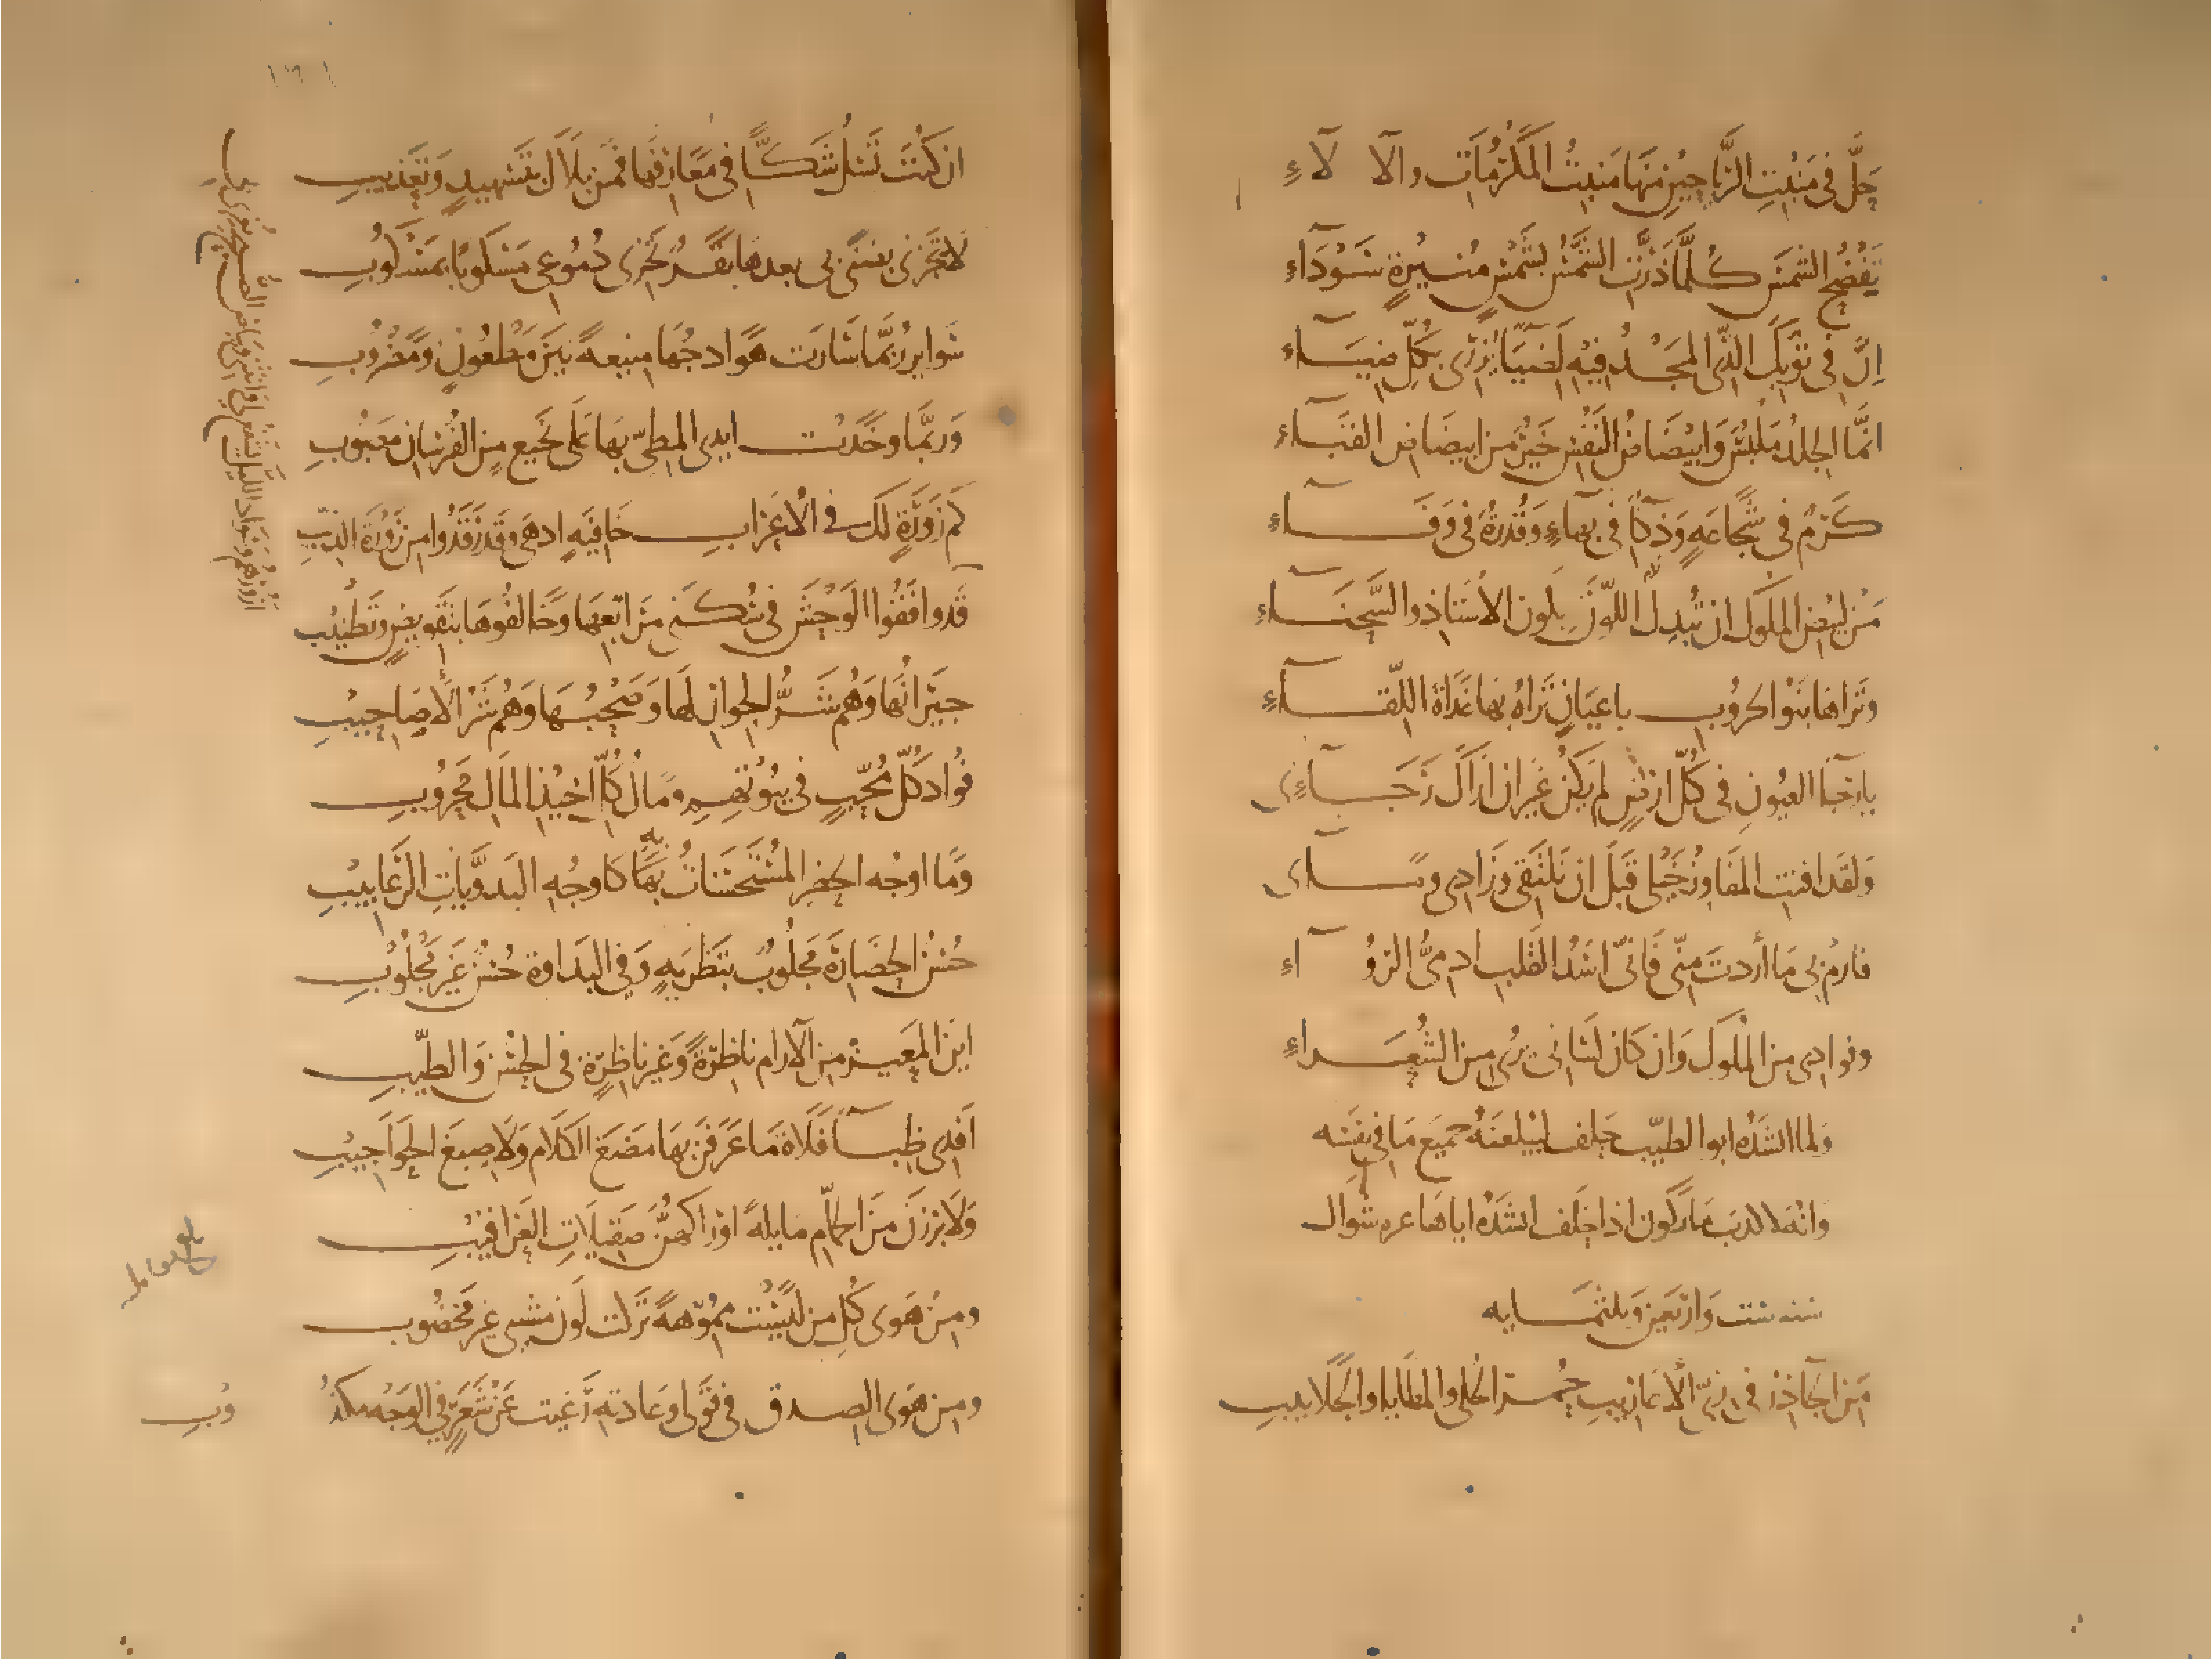 حلّ في منبت الرياحين منها منبت المكرمات والآلاء
تفضح الشمس كلما ذرّت الشمس بشمس منيرة سوداء
إنّ في ثوبك الذي المجد فيه لضياء يزرى بكلّ ضياء
انما الجلد ملبس وابيضاض النفس خير من ابيضاض القباء
كرم في شجاعة وذكاء في بهاء وقدرة في وفاء
من لبيض الملوك ان تبدل اللون بلون الاستاذ والسحناء
وتراها بنو الحروب باعيان تراه بها غداة اللقاء
يا رجاء العيون في كلّ ارض لم يكن غير ان اراك رجاءي
ولقد افنت المفاوز خيلي قبل ان نلتقى وزادى وماءى
فارم بي ما أردت منّي فانّي اسد القلب ادميّ الرواء
وفوادى من الملوك وان كان لسانى يرى من الشعراء
ولما انشده ابو الطيب حلف ليبلغنه جميع ما في نفسه
وانه لاكذب ما يكون اذا حلف انشده اياها شوال
سنه ست واربعين وثلثمايه
من الجآذر في زيّ الأعاريب حمر الحلى والمطايا والجلابيب
١٦١
ان كنت تسل شكّا في معارفها فمن بلاك بتسهيد وتعذيب
لا تجزنى بضنى بي بعدها بقر تجزى دموعى مسكوبا بمسكوب
سواير ربما سارت هوادجها منيعة بين مطعون ومضروب
وربّما وخدت ايدى المطيّ بها على نجيع من الفرسان مصبوب
كم زورة لك في الاعراب خافية ادهى وقد رقدوا من زورة الذيب
ازورهم وسواد الليل يشفع لي وانثني وبياض الصبح يغرى بي
قد وافقوا الوحش في سكنى مراتعها وخالفوها بتقويض وتطنيب
جيرانها وهم شرّ الجوار لها وصحبها وهم شرّ الأصاحيب
فواد كلّ محبّ في بيوتهم ومال كلّ اخيذ المال محروب
وما اوجه الحضر المستحسنات به كاوجه البدويّات الرعابيب
حسن الحضارة مجلوب بتطرية وفي البداوة حسن غير مجلوب
اين المعيز من الآرام ناظرة وغير ناظرة في الحسن والطيب
افدى ظباء فلاة ما عرفن بها مضغ الكلام ولا صبغ الحواجيب
ولا برزن من الحمّام مايلة اوراكهنّ صقيلات العراقيب
ومن هوى كل من ليست مموّهة تركت لون مشيبي غير مخضوب
ومن هوى الصدق في قولى وعادته رغبت عن شعر في الوجه مكذوب